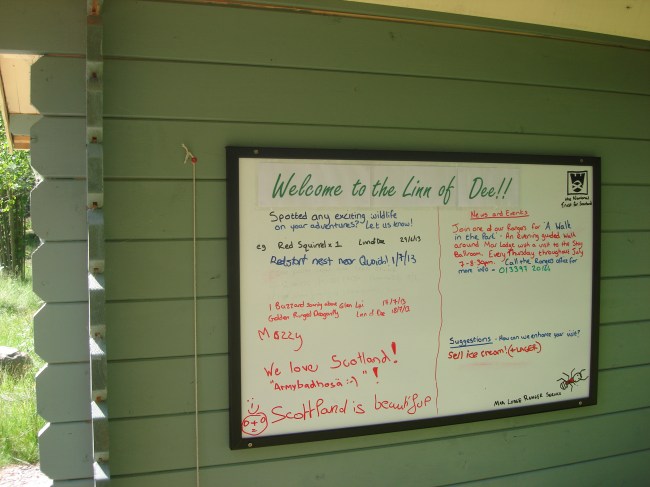 Welcome to the Linn of Dee!!
Spotted any exciting wildlife
on your adventures? Let us know!
eg Red Squirrel x 1 Linn of Dee
Redstart nest near Quoich 1/7/13
1 Buzzard soaring above Glen Lui
Golden Ringed Dragonfly Linn of Dee
Mozzy
We love Scotland!
"Armybadhosä :-)" !
Scottland is beautifup
the National
Trust for Scotland
News and Events
Join one of our Rangers for 'A Walk
in the Park' - An evening guided walk
around Mar Lodge with a visit to the Stag
Ballroom. Every Thursday throughout July
7-8.30pm. Call the Rangers office for
more info -
Suggestions - How can we enhance your visit?
Sell ice cream! (+LAGER)
Mar Lodge Ranger Service